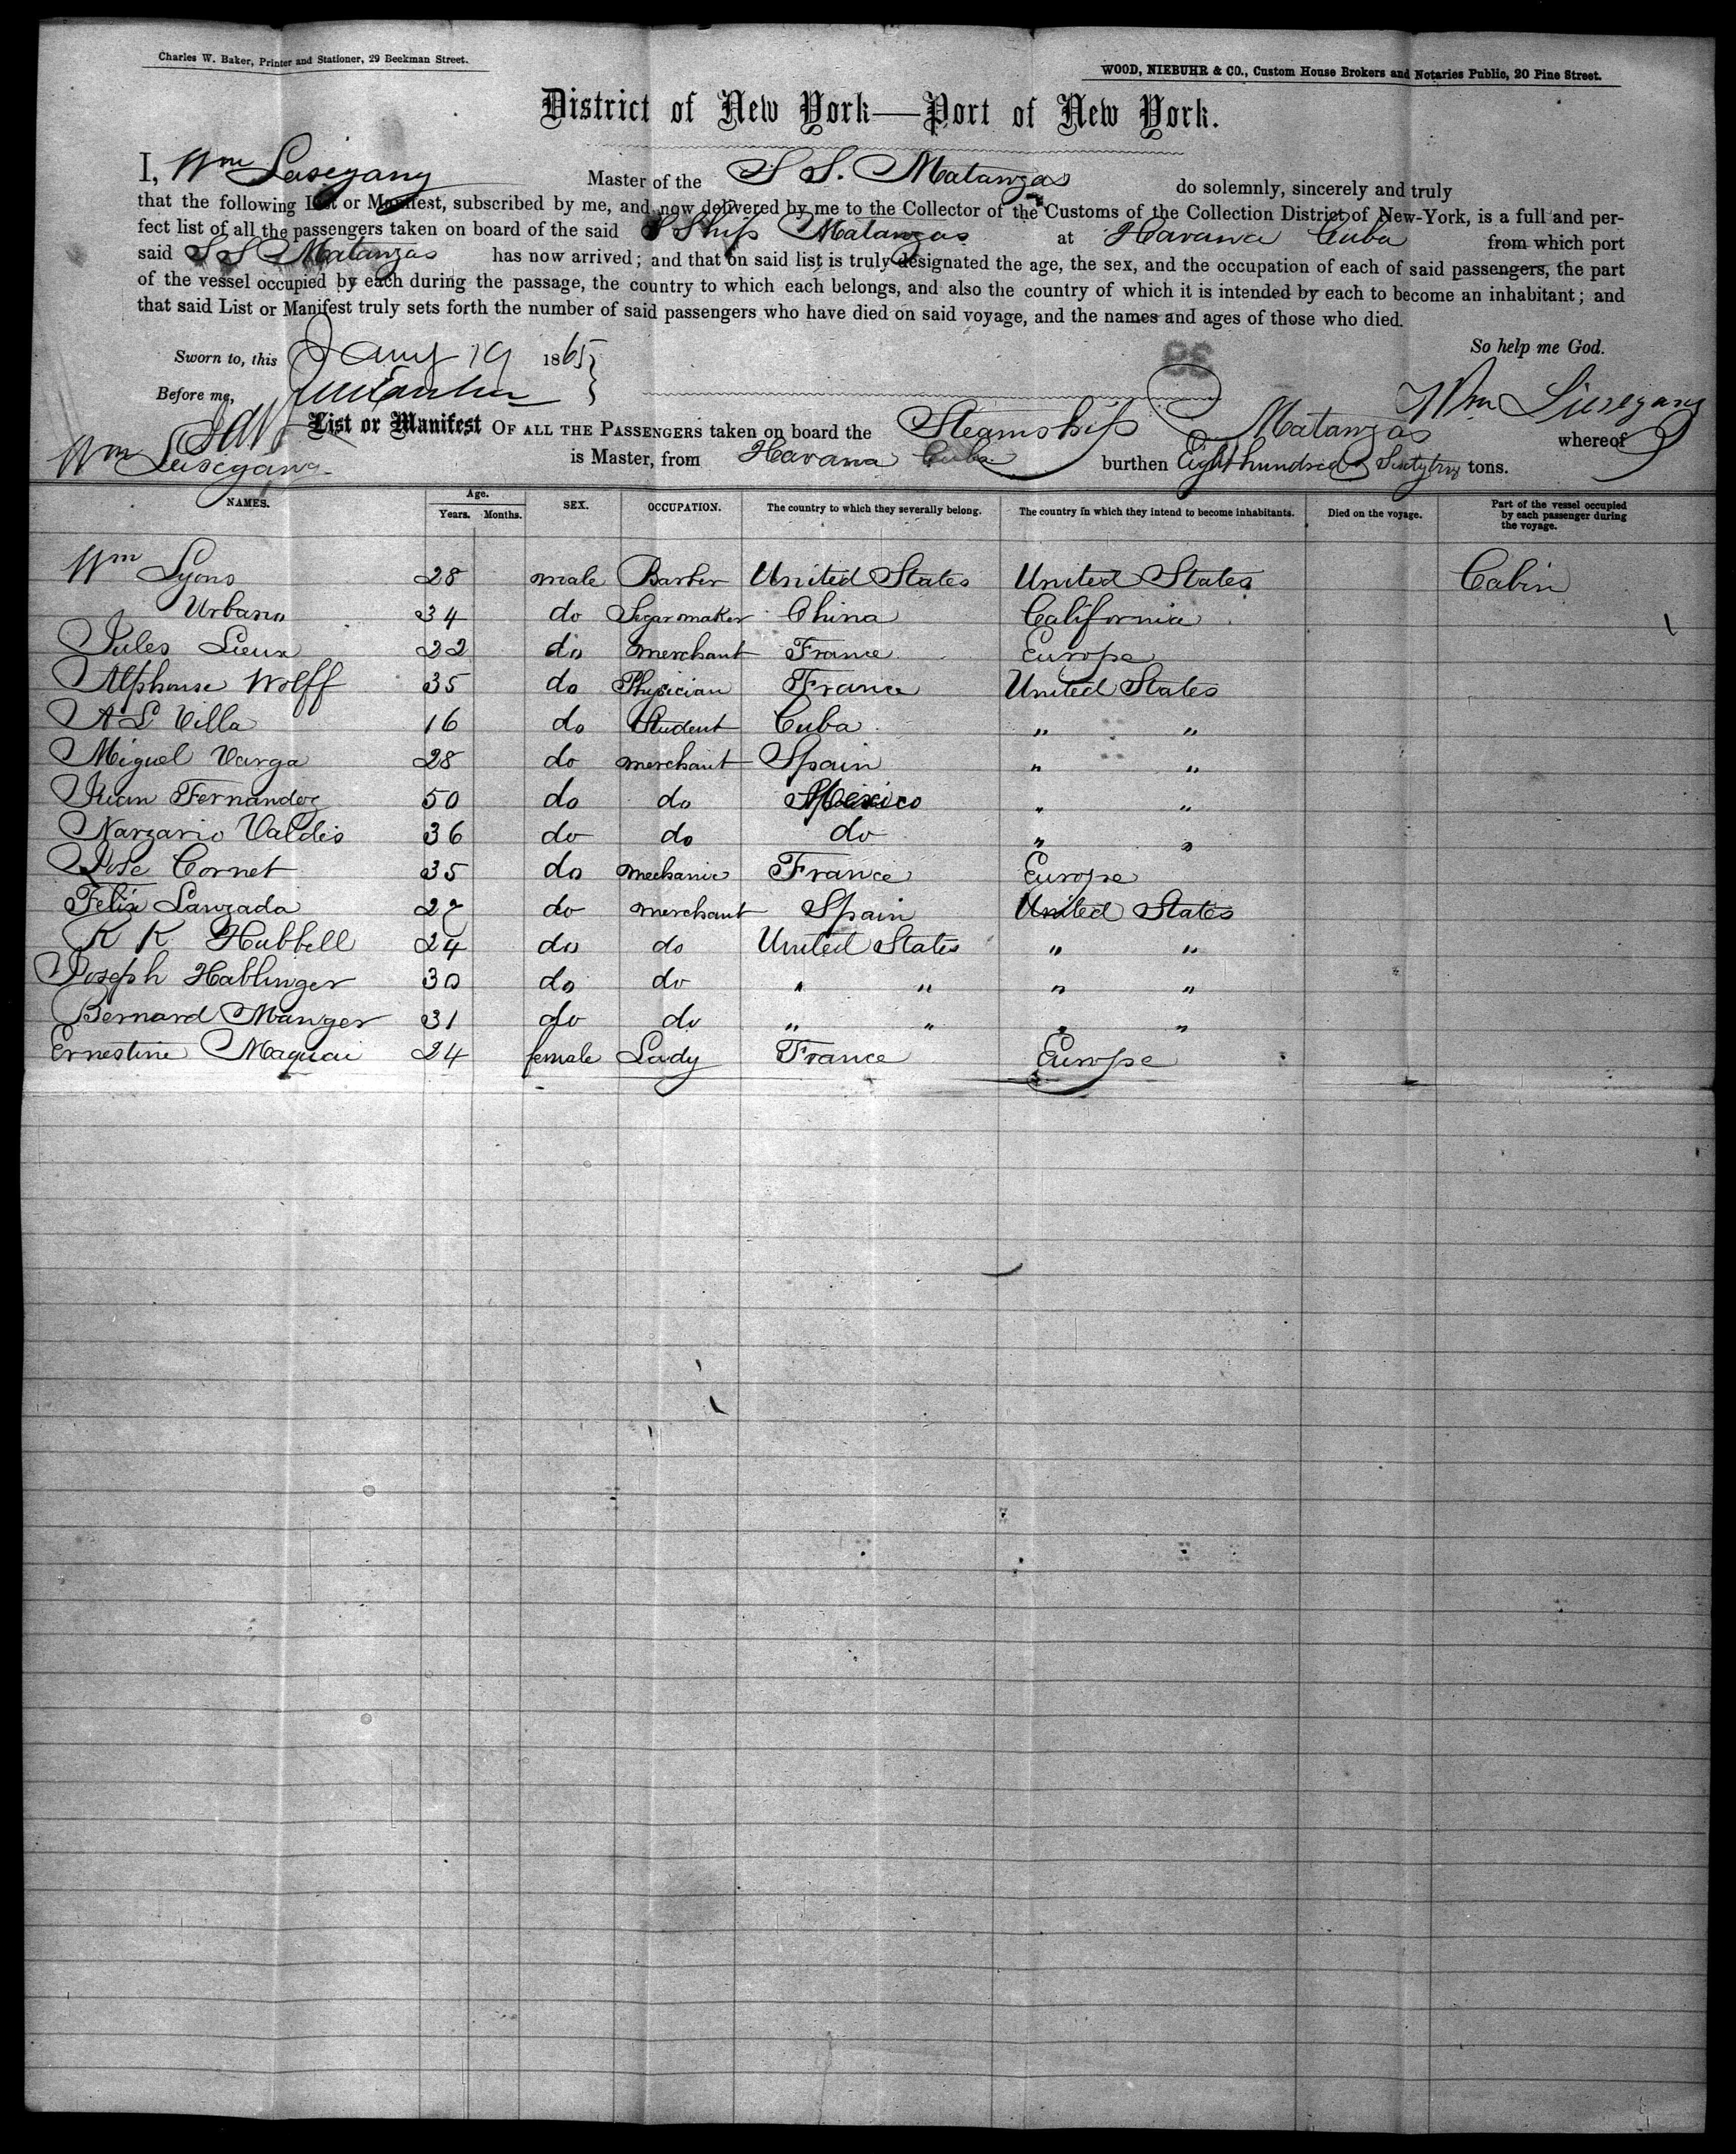 Charles W. Baker, Printer and Stationer, 29 Beekman Street.
WOOD, NIEBUHR & CO., Custom House Brokers and Notaries Public, 20 Pine Street.
District of New York—Port of New York.
I, Wm Liesegang Master of the S S. Matanzas do solemnly, sincerely and truly
that the following List or Manifest, subscribed by me, and now delivered by me to the Collector of the Customs of the Collection District of New-York, is a full and per-
fect list of all the passengers taken on board of the said S Ship Matanzas at Havana Cuba from which port
said S S Matanzas has now arrived; and that on said list is truly designated the age, the sex, and the occupation of each of said passengers, the part
of the vessel occupied by each during the passage, the country to which each belongs, and also the country of which it is intended by each to become an inhabitant; and
that said List or Manifest truly sets forth the number of said passengers who have died on said voyage, and the names and ages of those who died.
Sworn to, this Jany 19 1865 So help me God.
Before me, Wm Liesegang
List or Manifest OF ALL THE PASSENGERS taken on board the Steamship Matanzas whereof
Wm Liesegang is Master, from Havana Cuba burthen Eight hundred tons.
NAMES. Age. Years. Months. SEX. OCCUPATION. The country to which they severally belong. The country in which they intend to become inhabitants. Died on the voyage. Part of the vessel occupied by each passenger during the voyage.
Wm Lyons 28 male Barber United States United States Cabin
Urbano 34 do Segar maker China California
Jules Lieux 22 do merchant France Europe
Alphonse Wolff 35 do Physician France United States
A L Villa 16 do Student Cuba " "
Miguel Varga 28 do merchant Spain " "
Juan Fernandez 50 do do Mexico " "
Narzario Valdes 36 do do do " "
Jose Cornet 35 do mechanic France Europe
Felix Lanzada 27 do merchant Spain United States
K K Hubbell 24 do do United States " "
Joseph Hablinger 30 do do " " " "
Bernard Manger 31 do do " " " "
Ernestine Maquai 24 female Lady France Europe